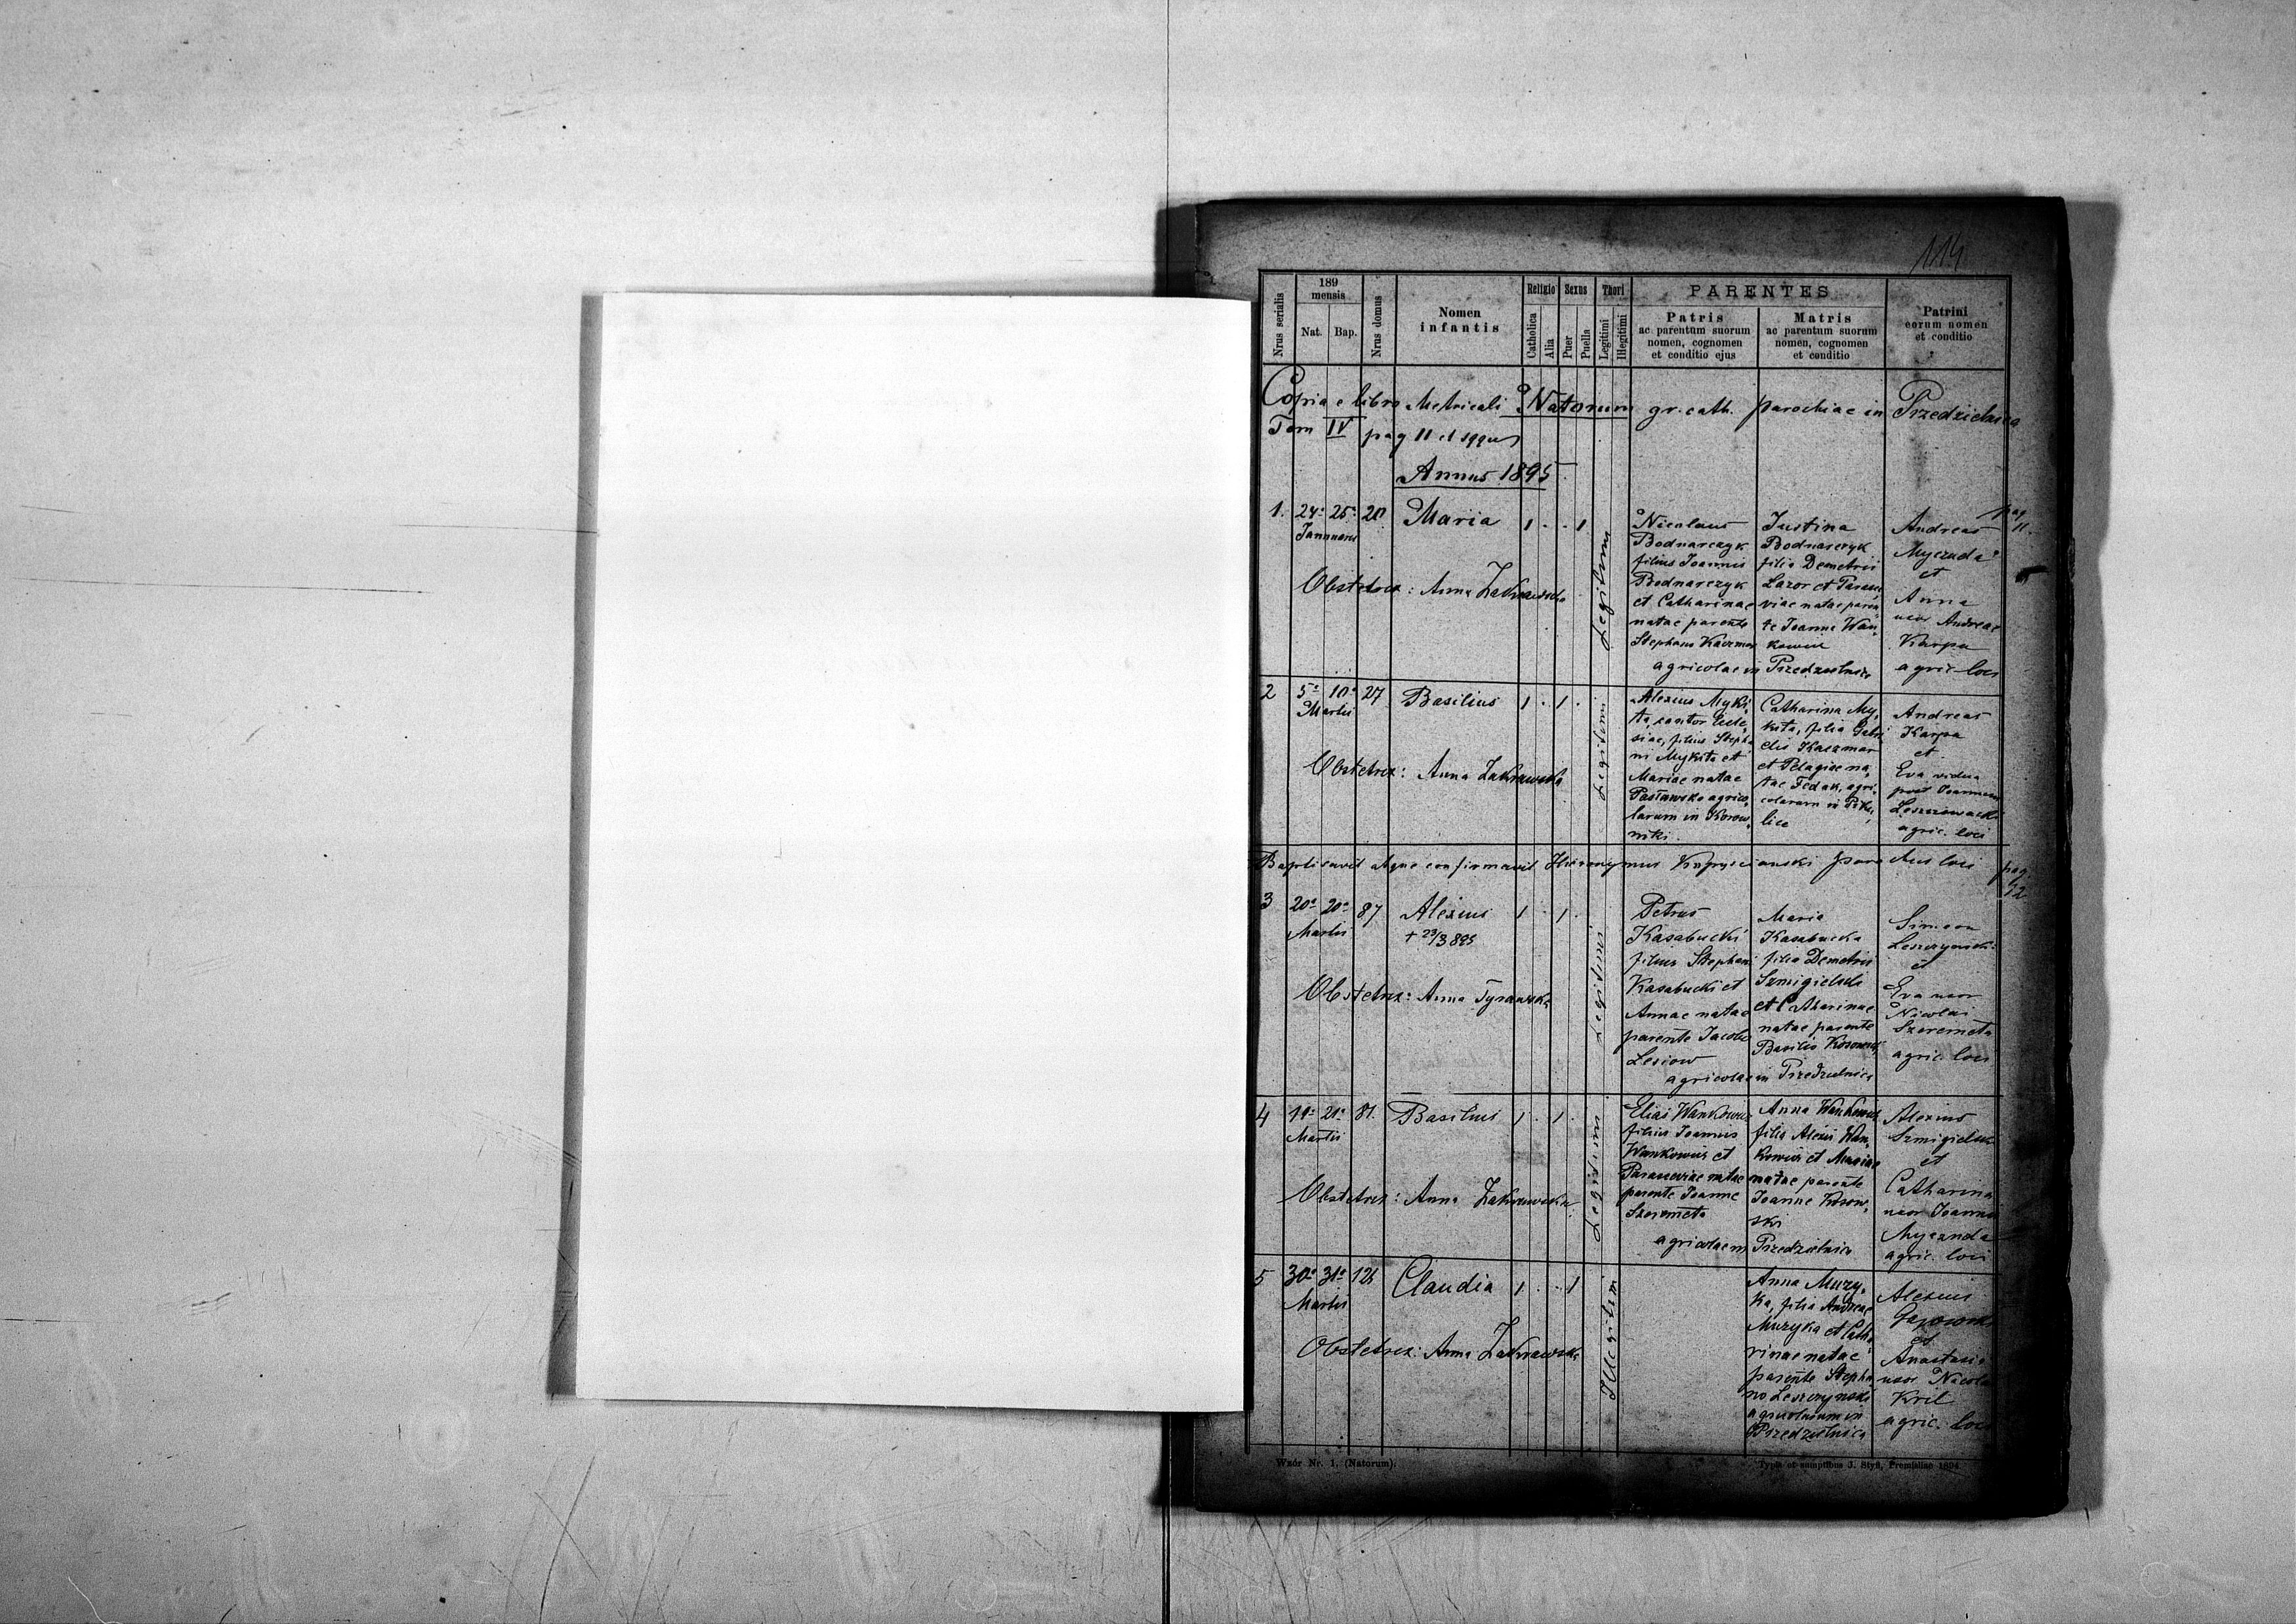 114
Nrus serialis
189
mensis
Nat.
Bap.
Nrus domus
Nomen
infantis
Religio
Catholica
Alia
Sexus
Puer
Puella
Thori
Legitimi
Illegitimi
PARENTES
Patris
ac parentum suorum
nomen, cognomen
et conditio ejus
Matris
ac parentum suorum
nomen, cognomen
et conditio
Patrini
eorum nomen
et conditio
Copia e libro Metricali Natorum gr. cath. parochiae in Przedzielnica
Tom IV pag 11 et sqqus
Annus 1895
pag
11.
1. 24a 25a 20 Maria 1 . . 1
Januarii
Obstetrix: Anna Zakrzewska
Legitimi
Nicolaus
Bodnarczyk
filius Joannis
Bodnarczyk
et Catharinae
natae parente
Stephano Kaczmar
agricolae in Przedzielnica
Justina
Bodnarczyk
filia Demetrii
Lazor et Paras
viae natae paren
te Joanne Wan
kowicz
Andreas
Myczuda
et
Anna
uxor Andreae
Karpa
agric. loci
2 5a 10a 27 Basilius 1 . 1 .
Martii
Obstetrix: Anna Zakrzewska
Legitimi
Alexius Myki
ta, cantor Eccle
siae, filius Stepha
ni Mykita et
Mariae natae
Pasławska agrico
larum in Korow
niki.
Catharina My
kita, filia Gabri
elis Kaczmar
et Pelagiae na
tae Fedak, agri
colarum in Piku
lice
Andreas
Karpa
et
Eva vidua
post Joannem
Leszczowacki
agric. loci
Baptisavit atque confirmavit Hieronymus parochus loci
pag.
12
3 20a 20a 87 Alexius 1 . 1 .
Martii
+ 23/3 895
Obstetrix: Anna Tyrawska
Legitimi
Petrus
Kasabucki
filius Stephani
Kasabucki et
Annae natae
parente Jacobo
Lesiow
agricolae in Przedzielnica
Maria
Kasabucka
filia Demetrii
Szmigielski
et Catharinae
natae parente
Basilio Kosowski
Simeon
Leszczynski
et
Eva uxor
Nicolai
Szeremeta
agric. loci
4 19a 21a 81. Basilius 1 . 1 .
Martii
Obstetrix: Anna Zakrzewska
Legitimi
Elias Wankowicz
filius Joannis
Wankowicz et
Parasceviae natae
parente Joanne
Szeremeta
agricolae in Przedzielnica
Anna Wankowicz
filia Alexii Wan
kowicz et Mariae
natae parente
Joanne Kosow
ski
Alexius
Szmigielski
et
Catharina
uxor Joannis
Myczuda
agric. loci
5 30a 31a 126 Claudia 1 . . 1
Martii
Obstetrix: Anna Zakrzewska
Illegitimi
Anna Muzy
ka, filia Andreae
Muzyka et Catha
rinae natae
parente Stepha
no Leszczynski
agricolarum in
Przedzielnica
Alexius
et
Anastasia
uxor Nicolai
Kril
agric. loci
Wzór Nr. 1. (Natorum).
Typis et sumptibus J. Styfi, Premisliae 1894